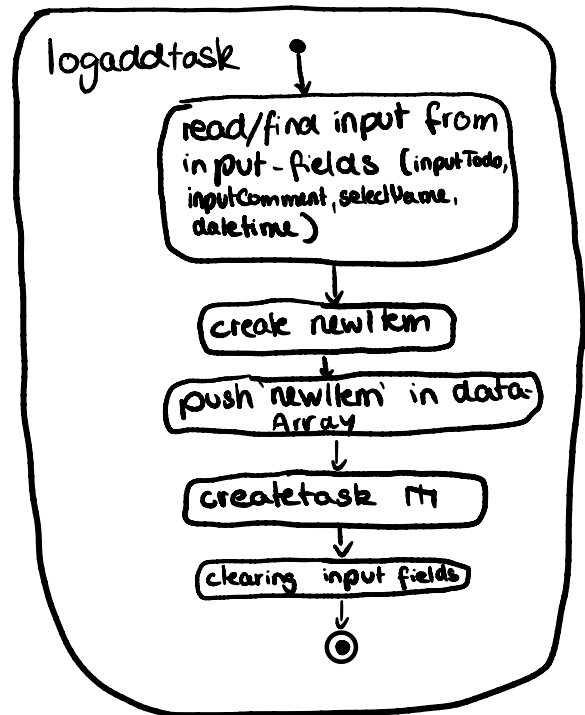 logaddtask
read/find input from
input-fields (inputTodo,
inputComment, selectName,
datetime)
create newItem
push 'newItem' in data-
Array
createtask
clearing input fields